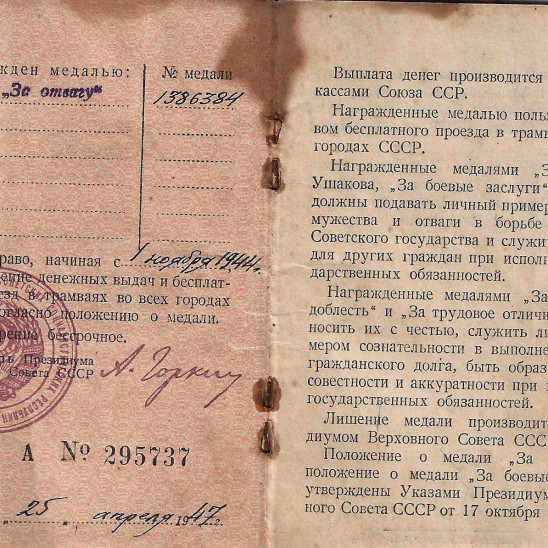 жден медалью:
„За отвагу"
№ медали
1386384
раво, начиная с 1 ноября 1944 г.
ение денежных выдач и бесплат-
езд в трамваях во всех городах
согласно положению о медали.
рение бессрочное.
ть Президиума
Совета СССР А. Горкин
А № 295737
„ 25 „ апреля 1947 г.
Выплата денег производится
кассами Союза ССР.
Награжденные медалью польз
вом бесплатного проезда в трамв
городах СССР.
Награжденные медалями „За
Ушакова, „За боевые заслуги“
должны подавать личный пример
мужества и отваги в борьбе
Советского государства и служит
для других граждан при исполн
дарственных обязанностей.
Награжденные медалями „За
доблесть“ и „За трудовое отличи
носить их с честью, служить пр
мером сознательности в выполне
гражданского долга, быть образ
совестности и аккуратности при
государственных обязанностей.
Лишение медали производит
диумом Верховного Совета СССР
Положение о медали „За
положение о медали „За боевые
утверждены Указами Президиум
ного Совета СССР от 17 октября